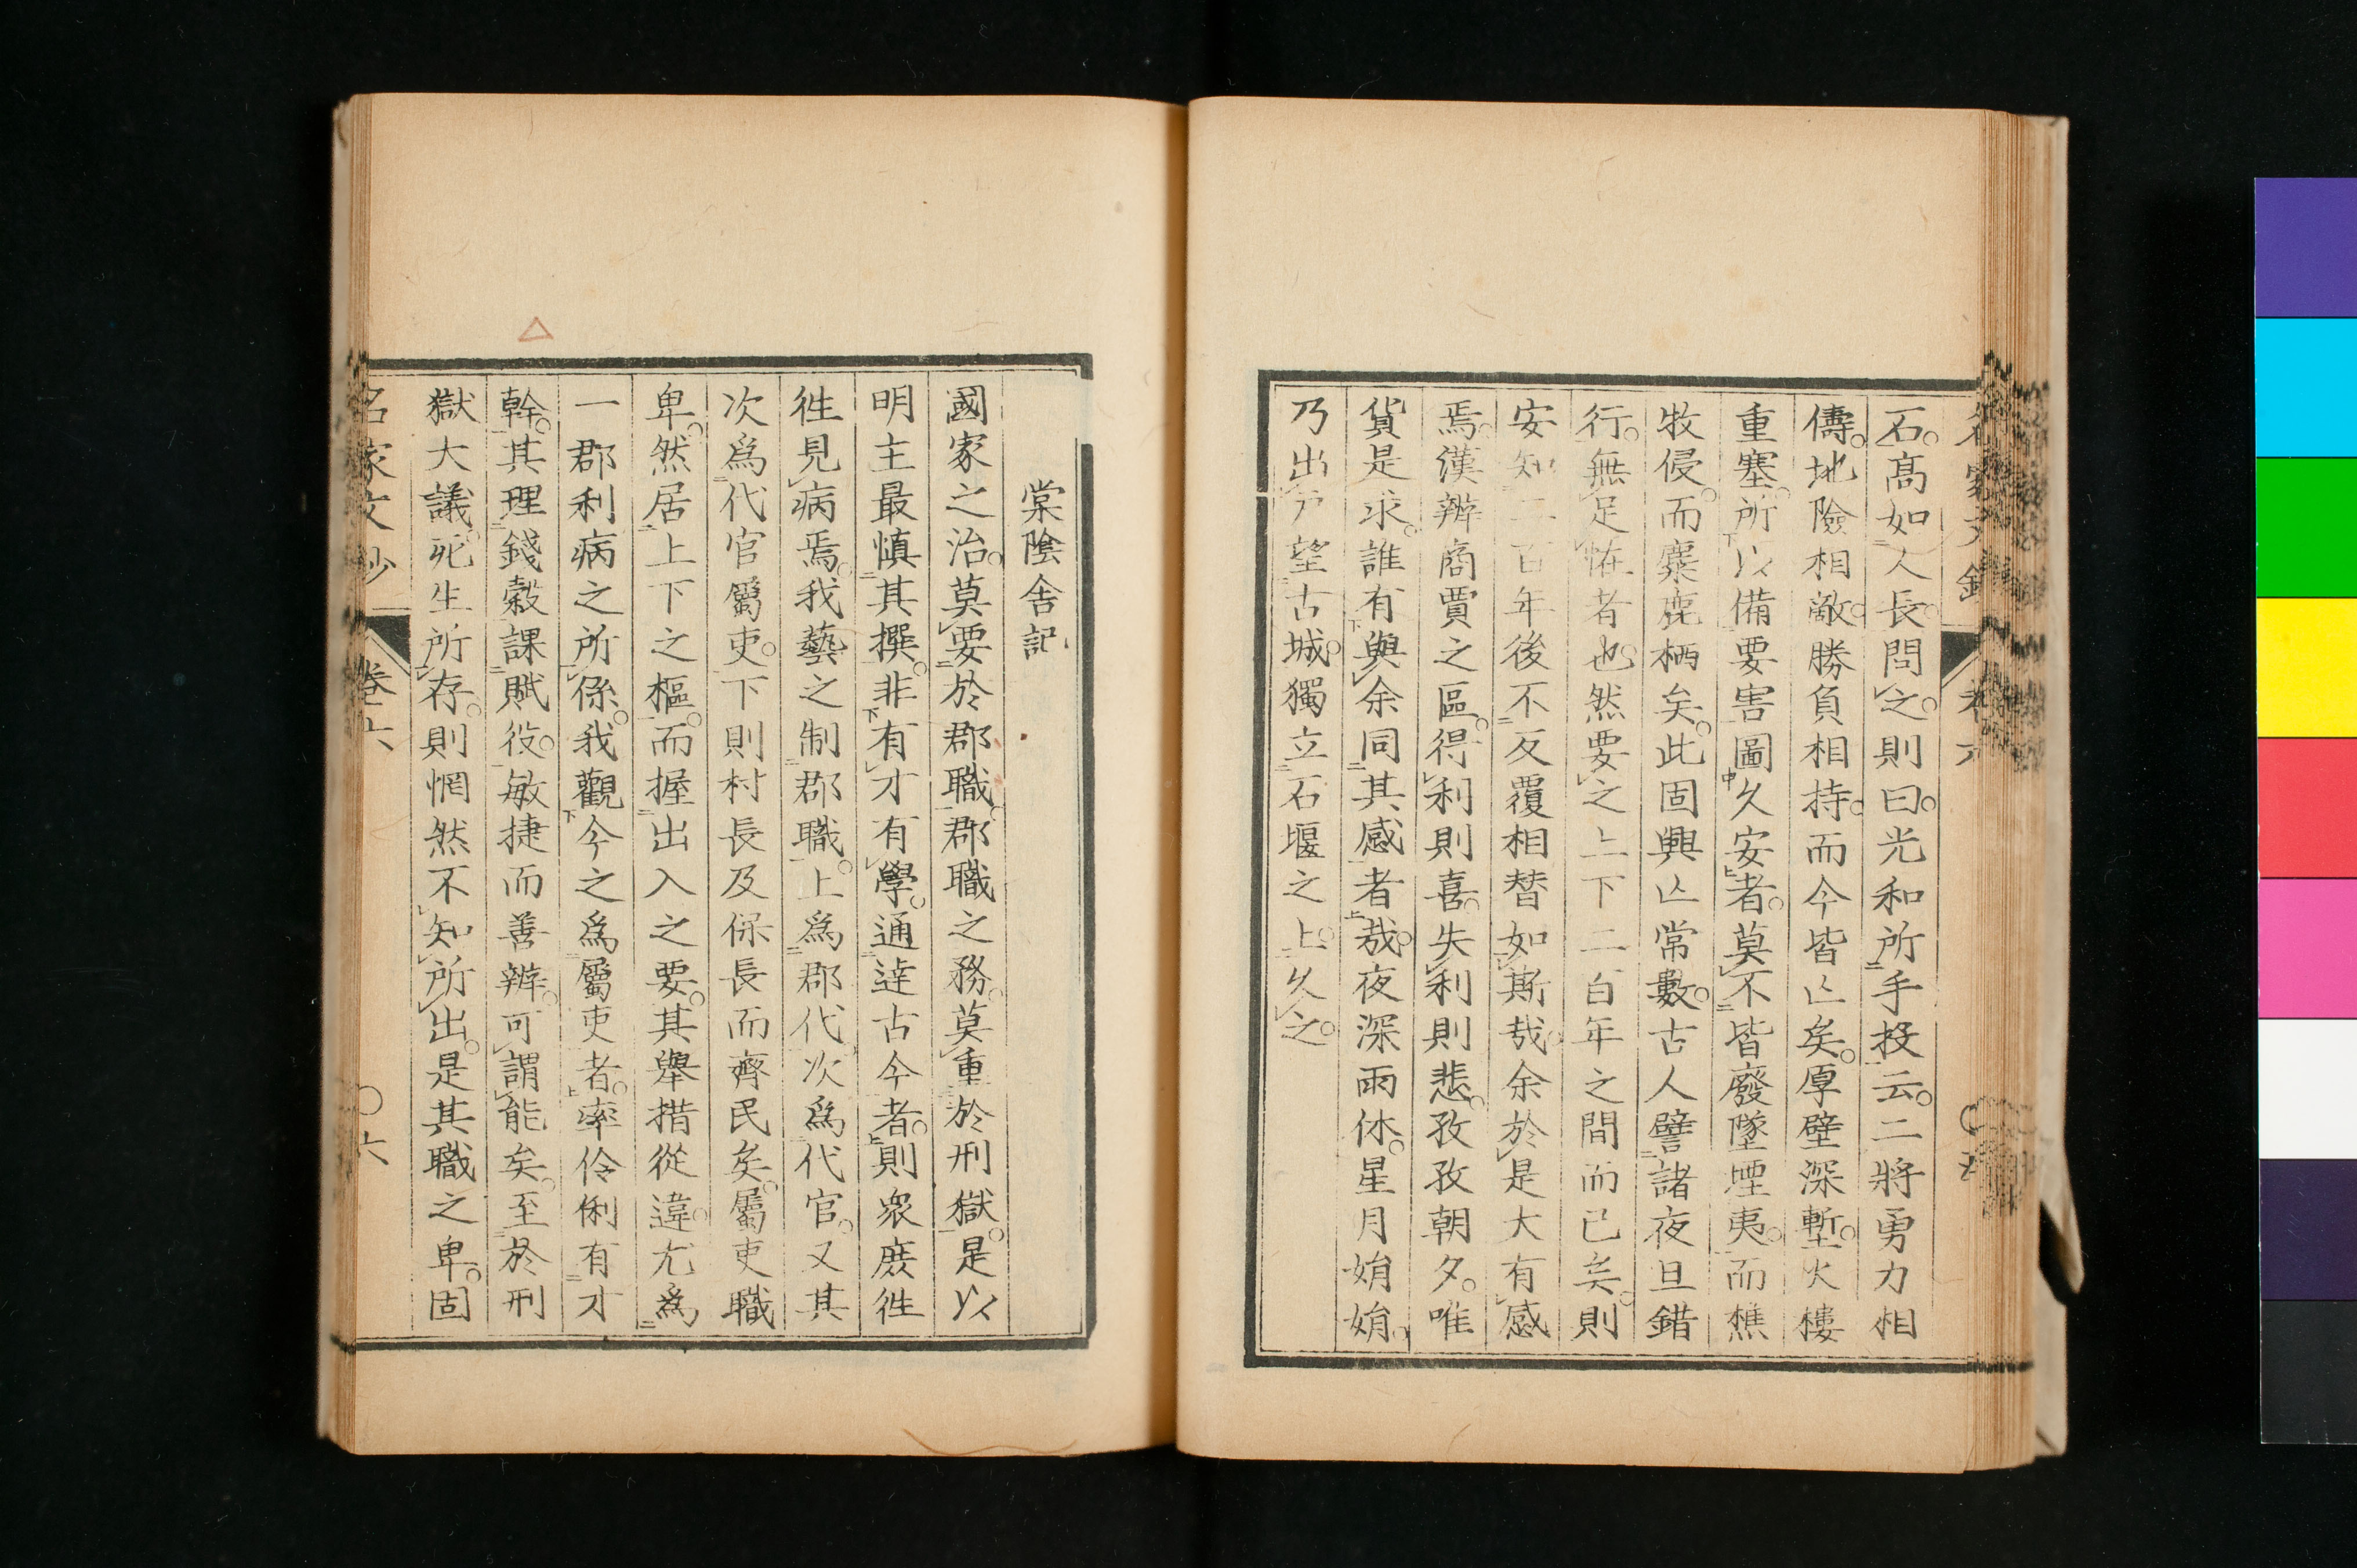 石高如人長問之則曰光和所手投云二將勇力相
儔地險相敵勝負相持而今皆亾矣厚壁深塹火樓
重塞所以備要害圖久安者莫不皆廢墜堙夷而樵
牧侵而麋鹿栖矣此固興亾常數古人譬諸夜旦錯
行無足恠者也然要之上下二百年之間而已矣則
安知二百年後不反覆相替如斯哉余於是大有感
焉漢辨商賈之區得利則喜失利則悲孜孜朝夕唯
貨是求誰有與余同其感者哉夜深雨休星月娟娟
乃出戸望古城獨立石堰之上久之
名家文鈔 卷六
棠陰舍記
國家之治莫要於郡職郡職之務莫重於刑獄是以
明主最愼其撰非有才有學通達古今者則衆庶徃
徃見病焉我藝之制郡職上爲郡代次爲代官又其
次爲代官屬吏下則村長及保長而齊民矣屬吏職
卑然居上下之樞而握出入之要其擧措從違尤爲
一郡利病之所係我觀今之爲屬吏者率伶俐有才
幹其理錢穀課賦役敏捷而善辨可謂能矣至於刑
獄大議死生所存則惘然不知所出是其職之卑固
名家文鈔 卷六 〇六